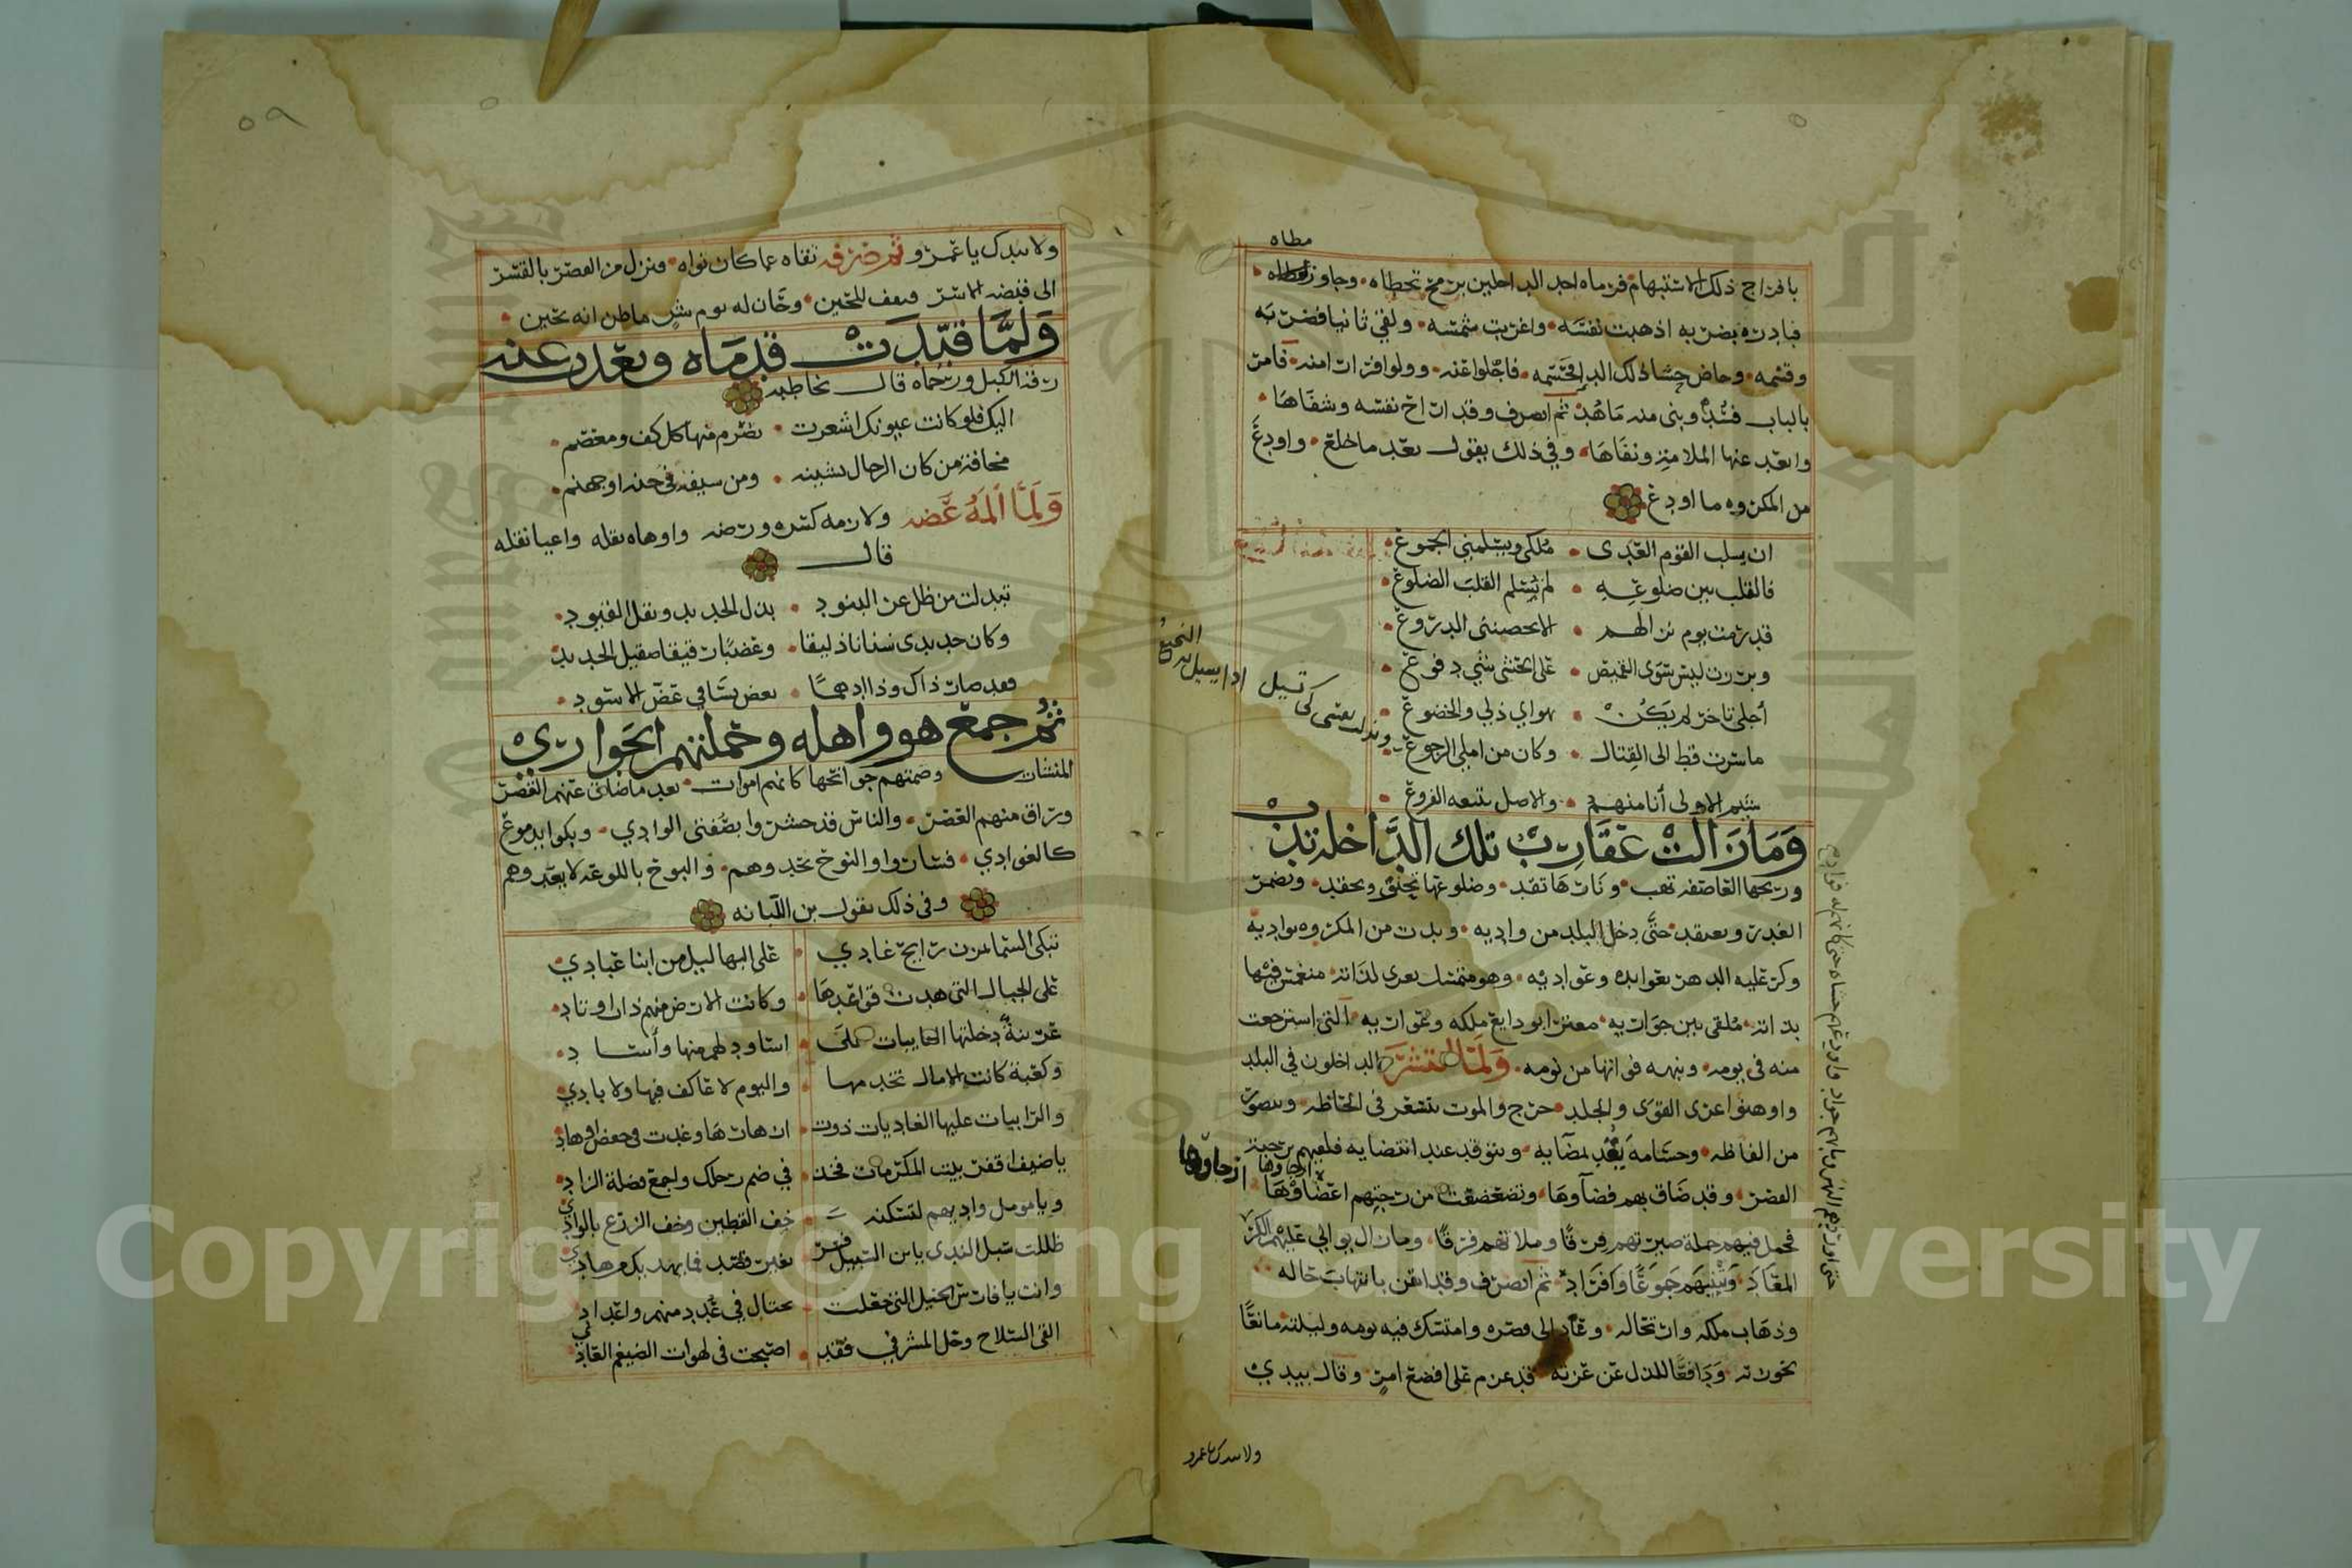 مطاه
بافراج ذلك الاستبهام فرماه احد الداخلين برمح تخطاه وجاوز مطاه
فبادره بضربه اذهبت نفسه واغربت شمسه ولقي ثانيا فضربه
وقسمه وخاض حشا ذلك الباب فاجلوا عنه وولوا فرارا منه فامر
بالباب فسد وبنى منه ما هد ثم انصرف وقد اراح نفسه وشفاها
وابعد عنها الملامة ونفاها وفي ذلك يقول بعد ما خلع واودع
من المكروه ما اودع
ان يسلب القوم العدى ملكي ويسلمني الجموع
فالقلب بين ضلوعه لم تسلم القلب الضلوع
قد رمت يوم نزالهم الا تحصنني الدروع
وبرزت ليس سوى القميص على الحشى شي دفوع
أجلي تاخر لم يكن بهواي ذلي والخضوع
ما سرت قط الى القتال وكان من املي الرجوع
شيم الاولى أنا منهم والاصل تتبعه الفروع
وبذلت نفسي كي تسيل اذا يسيل بها النجيع
وَمَا زَالت عَقَارِب تلك الدَّاخلة تدب
وريحها العاصفة تهب ونارها تقد وضلوعها تحنق وتحقد وتضمر
الغدر وتعتقد حتى دخل البلد من واديه وبدت من المكروه بواديه
وكر عليه الدهر بعوايده وعواديه وهو متمسك بعرى لذاته منغمس فيها
بذاته ملقى بين جواريه مغتر بودايع ملكه وعواريه التي استرجعت
منه في يومه ونبهه فواتها من نومه ولما انتشر الداخلون في البلد
واوهنوا عرى القوى والجلد خرج والموت يتسعر في الحاظه ويتصور
من الفاظه وحسامه يعد بمضايه ويتوقد عند انتضايه فلقيهم برحبة
القصر وقد ضاق بهم فضاوها وتضعضعت من رجتهم اعضاوها
ارجاوها
فحمل فيهم حملة صيرتهم فرقا وملاتهم فرقا وما زال يوالي عليهم الكر
المعاد ثم انصرف وقد ايقن بانتهاب حاله
وذهاب ملكه وارتحاله وعاد الى قصره وامتسك فيه يومه وليلته مانعا
لحوزته ودافعا للذل عن عزته قد عزم على افضع امر وقال بيدي
حتى اوردهم النهر وما بهم جواد واودعهم حشاه حتى كانهم له فواد
ولا بيدك يا عمرو
٥٩
ولا بيدك يا عمرو ثم صرفه تقاه عما كان نواه ونزل من القصر بالقسر
الى قبضة الاسر فقيد للحين وحان له يوم شر ما ظن انه يحين
وَلمَّا قيّدَت قدمَاه وبعدت عنه
رقة الكبل ورحماه قال يخاطبه
اليك فلو كانت عيونك اشعرت تضرم منها كل كف ومعصم
مخافة من كان الرجال بسيبه ومن سيفه في جنة او جهنم
وَلمَّا ألمَهُ عَضه ولازمه كسره ورضه واوهاه ثقله واعيا نقله
قال
تبدلت من ظل عز البنود بذل الحديد وثقل القيود
وكان حديدي سنانا ذليقا وعضبا رقيقا صقيل الحديد
فقد صار ذاك وذا ادهما يعض بساقي عض الاسود
ثم جمع هو واهله وحملتهم الجواري
المنشات وضمتهم جوانحها كانهم اموات بعد ما ضاق عنهم القصر
وراق منهم العصر والناس قد حشروا بضفتي الوادي وبكوا بدموع
كالغوادي فساروا والنوح يحدوهم والبوح باللوعة لا يعدوهم
وفي ذلك يقول بن اللبانه
تبكي السما بمزن رايح غادي على البهاليل من ابنا عبادي
على الجبال التي هدت قواعدها وكانت الارض منهم ذات اوتاد
عريسة دخلتها النايبات على اساود لهم منها وأساد
وكعبة كانت الامال تخدمها واليوم لا عاكف فيها ولا بادي
يا ضيف اقفر بيت المكرمات فخذ في ضم رحلك واجمع فضلة الزاد
ويا مومل واديهم لتسكنه خف القطين وجف الزرع بالوادي
ظللت سبل الندى يا بن السبيل فسر بغير قصد فما يهديك من هادي
وانت يا فارس الخيل التي جعلت تختال في عدد منهم واعداد
القى السلاح وخل المشرفي فقد اصبحت في لهوات الضيغم العادي